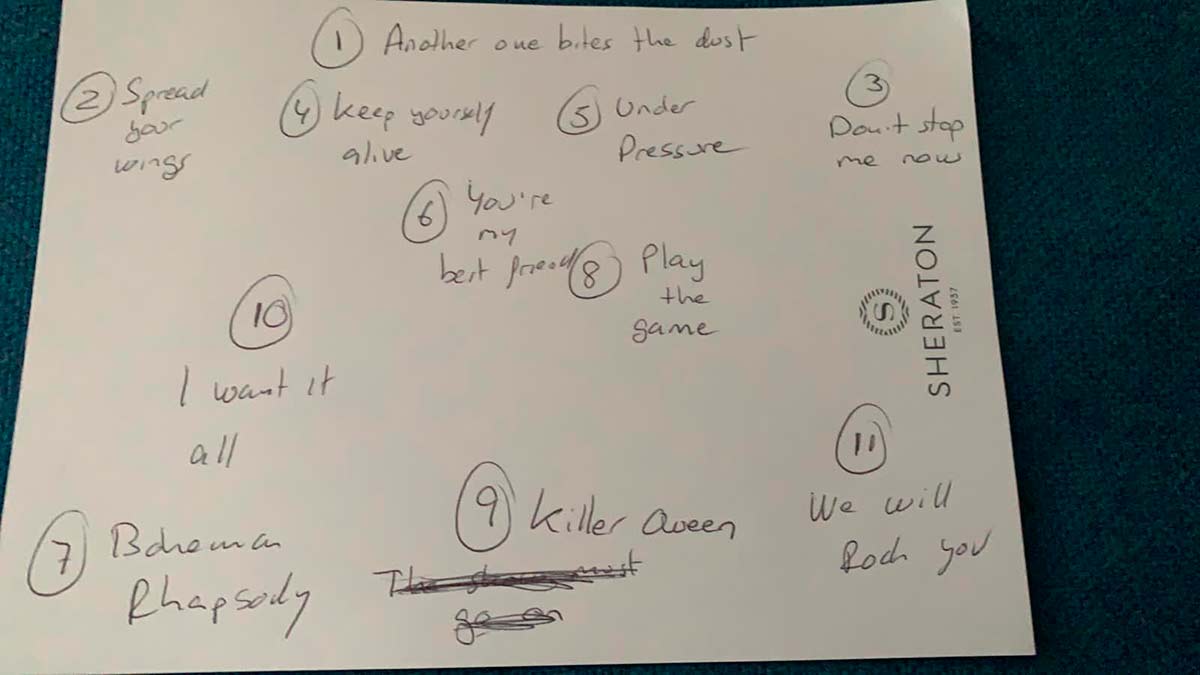 1 Another one bites the dust
2 Spread
your
wings
4 Keep yourself
alive
5 Under
Pressure
3
Don't stop
me now
6 You're
my
best friend
8 Play
the
game
10
I want it
all
S
SHERATON
EST 1937
11
We will
Rock you
7 Boheman
Rhapsody
9 Killer Queen
The show must
go on